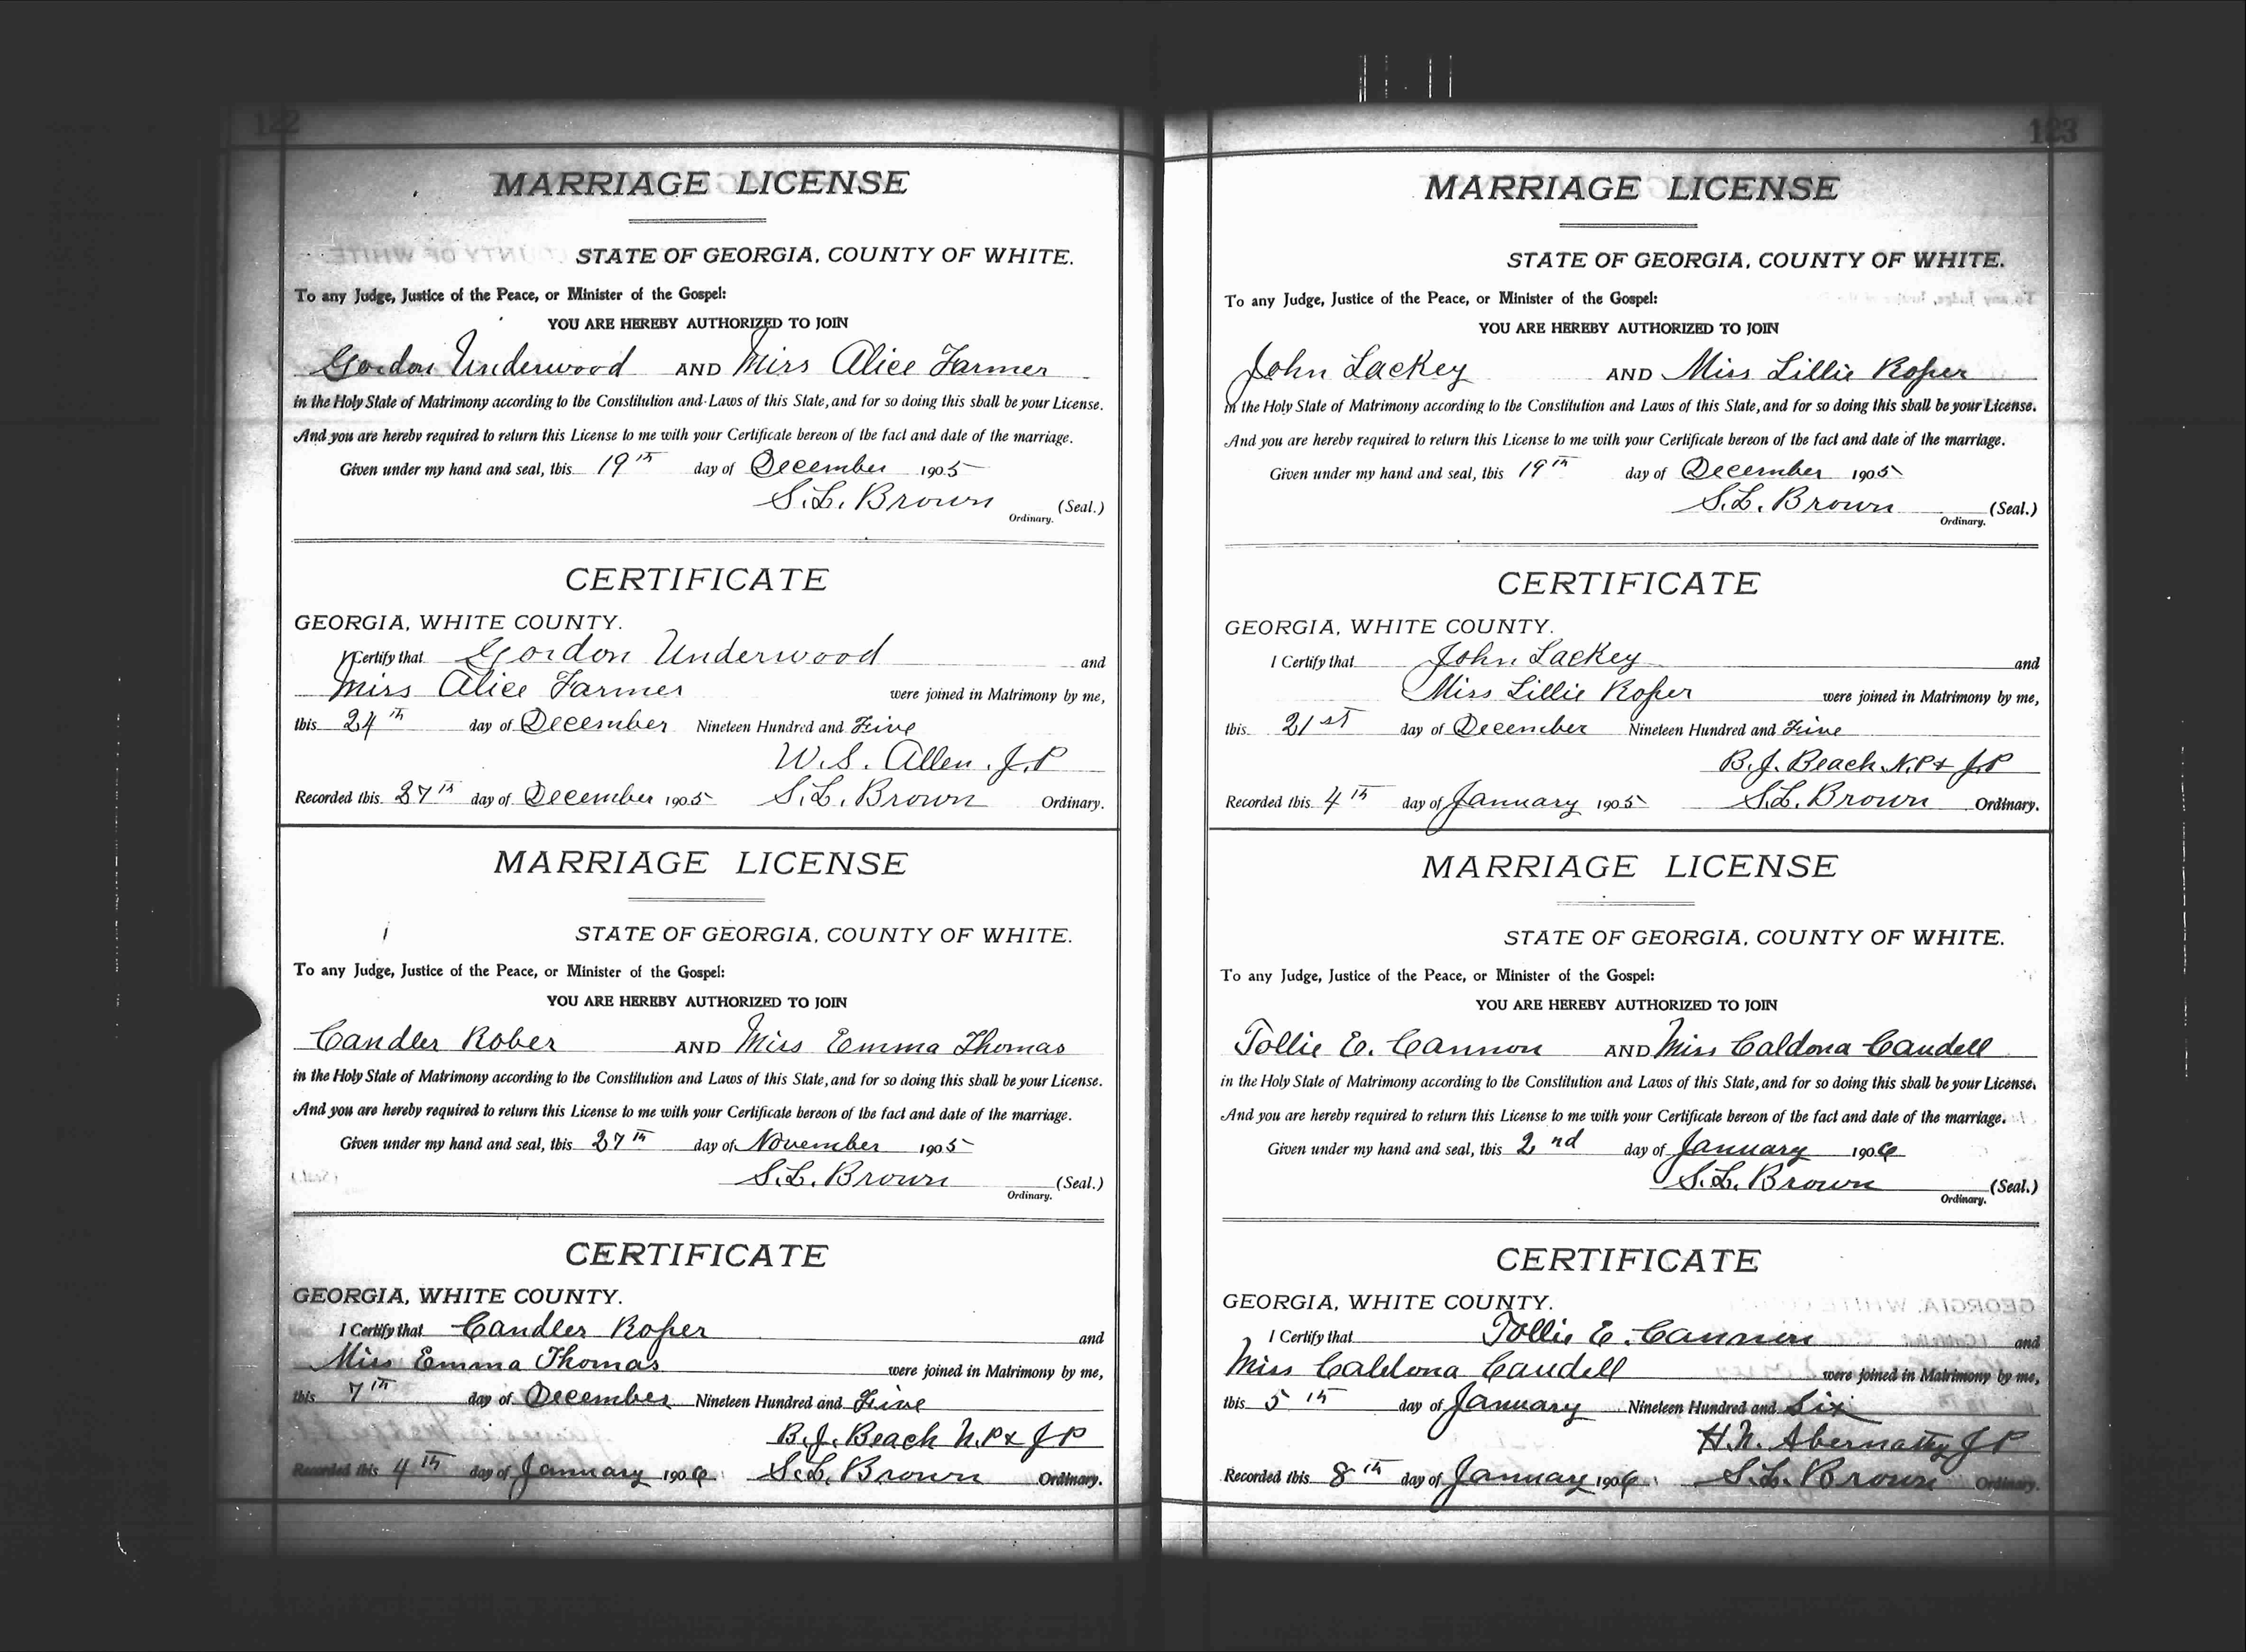 122
MARRIAGE LICENSE
STATE OF GEORGIA, COUNTY OF WHITE.
To any Judge, Justice of the Peace, or Minister of the Gospel:
YOU ARE HEREBY AUTHORIZED TO JOIN
Gordon Underwood AND Miss Alice Farmer
in the Holy State of Matrimony according to the Constitution and Laws of this State, and for so doing this shall be your License.
And you are hereby required to return this License to me with your Certificate hereon of the fact and date of the marriage.
Given under my hand and seal, this 19th day of December 1905
S.L. Brown (Seal.)
Ordinary.
CERTIFICATE
GEORGIA, WHITE COUNTY.
I Certify that Gordon Underwood and
Miss Alice Farmer were joined in Matrimony by me,
this 24th day of December Nineteen Hundred and Five
W.S. Allen. J.P
Recorded this 27th day of December 1905 S.L. Brown Ordinary.
MARRIAGE LICENSE
STATE OF GEORGIA, COUNTY OF WHITE.
To any Judge, Justice of the Peace, or Minister of the Gospel:
YOU ARE HEREBY AUTHORIZED TO JOIN
Candler Rober AND Miss Emma Thomas
in the Holy State of Matrimony according to the Constitution and Laws of this State, and for so doing this shall be your License.
And you are hereby required to return this License to me with your Certificate hereon of the fact and date of the marriage.
Given under my hand and seal, this 27th day of November 1905
S.L. Brown (Seal.)
Ordinary.
CERTIFICATE
GEORGIA, WHITE COUNTY.
I Certify that Candler Roper and
Miss Emma Thomas were joined in Matrimony by me,
this 7th day of December Nineteen Hundred and Five
B.J. Beach N.P & J P
Recorded this 4th day of January 1906. S.L. Brown Ordinary.
123
MARRIAGE LICENSE
STATE OF GEORGIA, COUNTY OF WHITE.
To any Judge, Justice of the Peace, or Minister of the Gospel:
YOU ARE HEREBY AUTHORIZED TO JOIN
John Lackey AND Miss Lillie Roper
in the Holy State of Matrimony according to the Constitution and Laws of this State, and for so doing this shall be your License.
And you are hereby required to return this License to me with your Certificate hereon of the fact and date of the marriage.
Given under my hand and seal, this 19th day of December 1905
S.L. Brown (Seal.)
Ordinary.
CERTIFICATE
GEORGIA, WHITE COUNTY.
I Certify that John Lackey and
Miss Lillie Roper were joined in Matrimony by me,
this 21st day of December Nineteen Hundred and Five
B.J. Beach N.P & J.P
Recorded this 4th day of January 1905 S.L. Brown Ordinary.
MARRIAGE LICENSE
STATE OF GEORGIA, COUNTY OF WHITE.
To any Judge, Justice of the Peace, or Minister of the Gospel:
YOU ARE HEREBY AUTHORIZED TO JOIN
Tollie E. Cannon AND Miss Caldona Caudell
in the Holy State of Matrimony according to the Constitution and Laws of this State, and for so doing this shall be your License.
And you are hereby required to return this License to me with your Certificate hereon of the fact and date of the marriage.
Given under my hand and seal, this 2nd day of January 1906
S.L. Brown (Seal.)
Ordinary.
CERTIFICATE
GEORGIA, WHITE COUNTY.
I Certify that Tollie E. Cannon and
Miss Caldona Caudell were joined in Matrimony by me,
this 5th day of January Nineteen Hundred and Six
H.N. Abernathy J P
Recorded this 8th day of January 1906. S.L. Brown Ordinary.